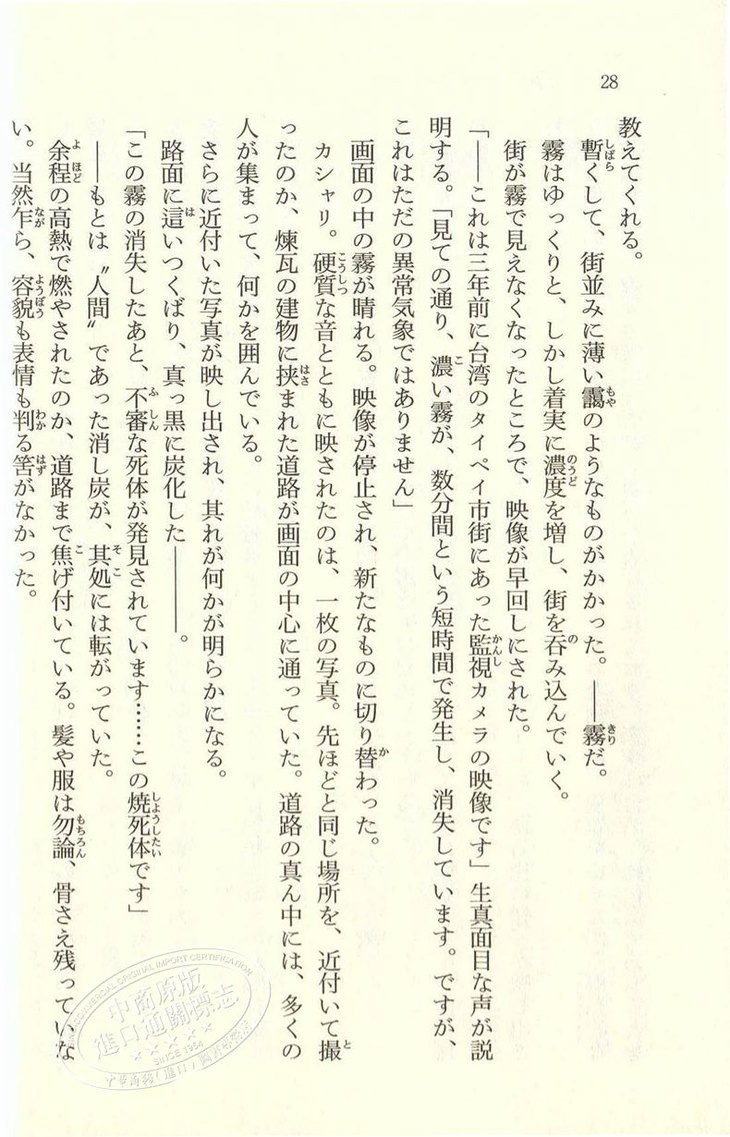 28
教えてくれる。
暫くして、街並みに薄い靄のようなものがかかった。――霧だ。
霧はゆっくりと、しかし着実に濃度を増し、街を呑み込んでいく。
街が霧で見えなくなったところで、映像が早回しにされた。
「――これは三年前に台湾のタイペイ市街にあった監視カメラの映像です」生真面目な声が説
明する。「見ての通り、濃い霧が、数分間という短時間で発生し、消失しています。ですが、
これはただの異常気象ではありません」
画面の中の霧が晴れる。映像が停止され、新たなものに切り替わった。
カシャリ。硬質な音とともに映されたのは、一枚の写真。先ほどと同じ場所を、近付いて撮
ったのか、煉瓦の建物に挟まれた道路が画面の中心に通っていた。道路の真ん中には、多くの
人が集まって、何かを囲んでいる。
さらに近付いた写真が映し出され、其れが何かが明らかになる。
路面に這いつくばり、真っ黒に炭化した――――。
「この霧の消失したあと、不審な死体が発見されています……この焼死体です」
――もとは〝人間〟であった消し炭が、其処には転がっていた。
余程の高熱で燃やされたのか、道路まで焦げ付いている。髪や服は勿論、骨さえ残っていな
い。当然乍ら、容貌も表情も判る筈がなかった。
COMMERCIAL ORIGINAL IMPORT CERTIFICATION
中商原版
進口通關標志
SINCE 1954